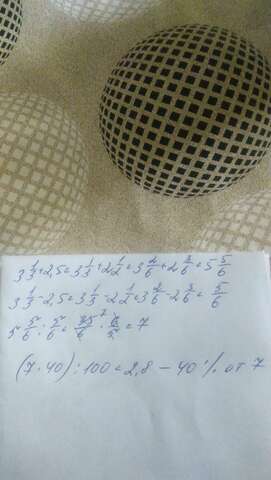 3 1/3 + 2,5 = 3 1/3 + 2 1/2 = 3 2/6 + 2 3/6 = 5 5/6
3 1/3 - 2,5 = 3 1/3 - 2 1/2 = 3 2/6 - 2 3/6 = 5/6
5 5/6 : 5/6 = 35/6 · 6/5 = 7
(7·40):100 = 2,8 — 40% от 7